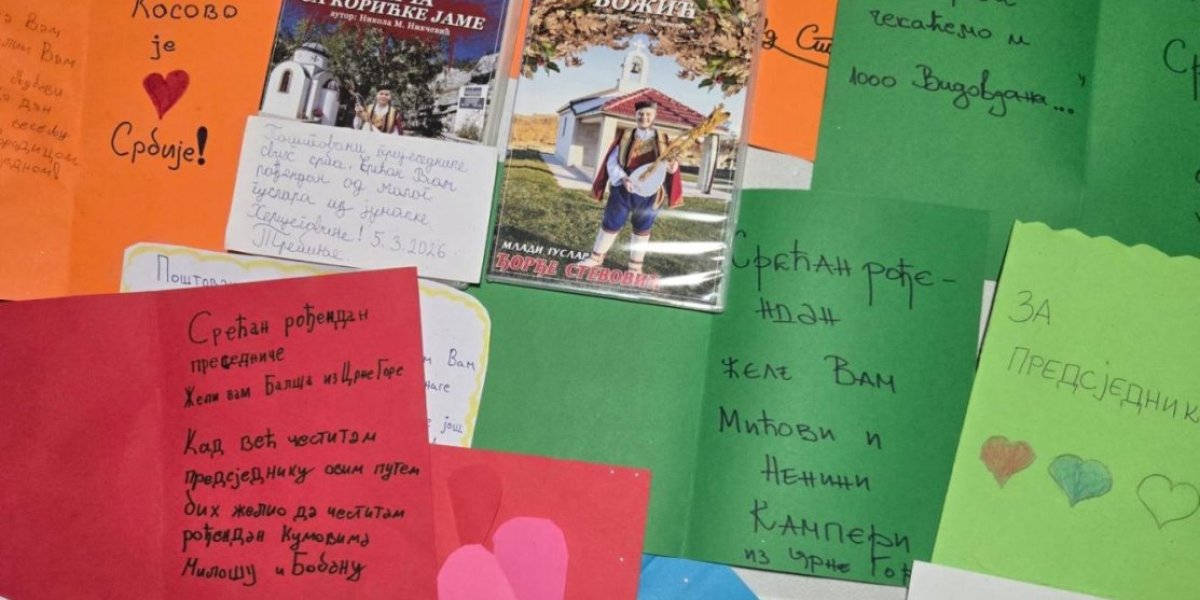 Вам
Вам
дан
весељу
породицом
Косово
је
Србије!
КОРИЋКЕ ЈАМЕ
аутор: Никола М. Никчевић
Поштовани предсједниче
свих срба, срећан Вам
рођендан од малог
гуслара из јуначке
Херцеговине! 5.3.2026
Требиње.
БОЖИЋ
МЛАДИ ГУСЛАР
ЂОРЂЕ СТЕВОВИЋ
чекаћемо и
1000 Видовдана...
Ср
Поштова
Вам
још
Срећан рођендан
преседниче
Жели вам Балша из Црне Горе
Кад већ честитам
предсједнику осим путем
бих желио да честитам
рођендан Кумовима
Милошу и Бобану
Срећан рође-
ндан
желе Вам
Мићови и
Ненини
Кампери
из Црне Гор
ЗА
ПРЕДСЈЕДНИК